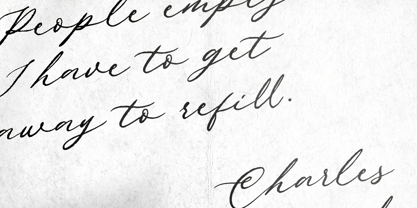 People empty
I have to get
away to refill.
Charles